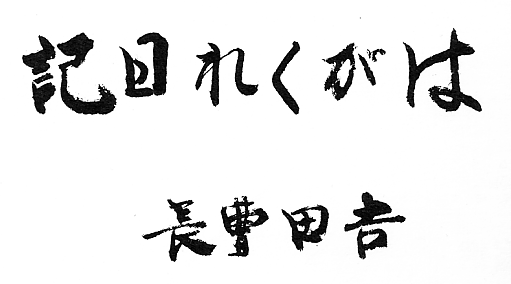 はがくれ日記
吉田豊長